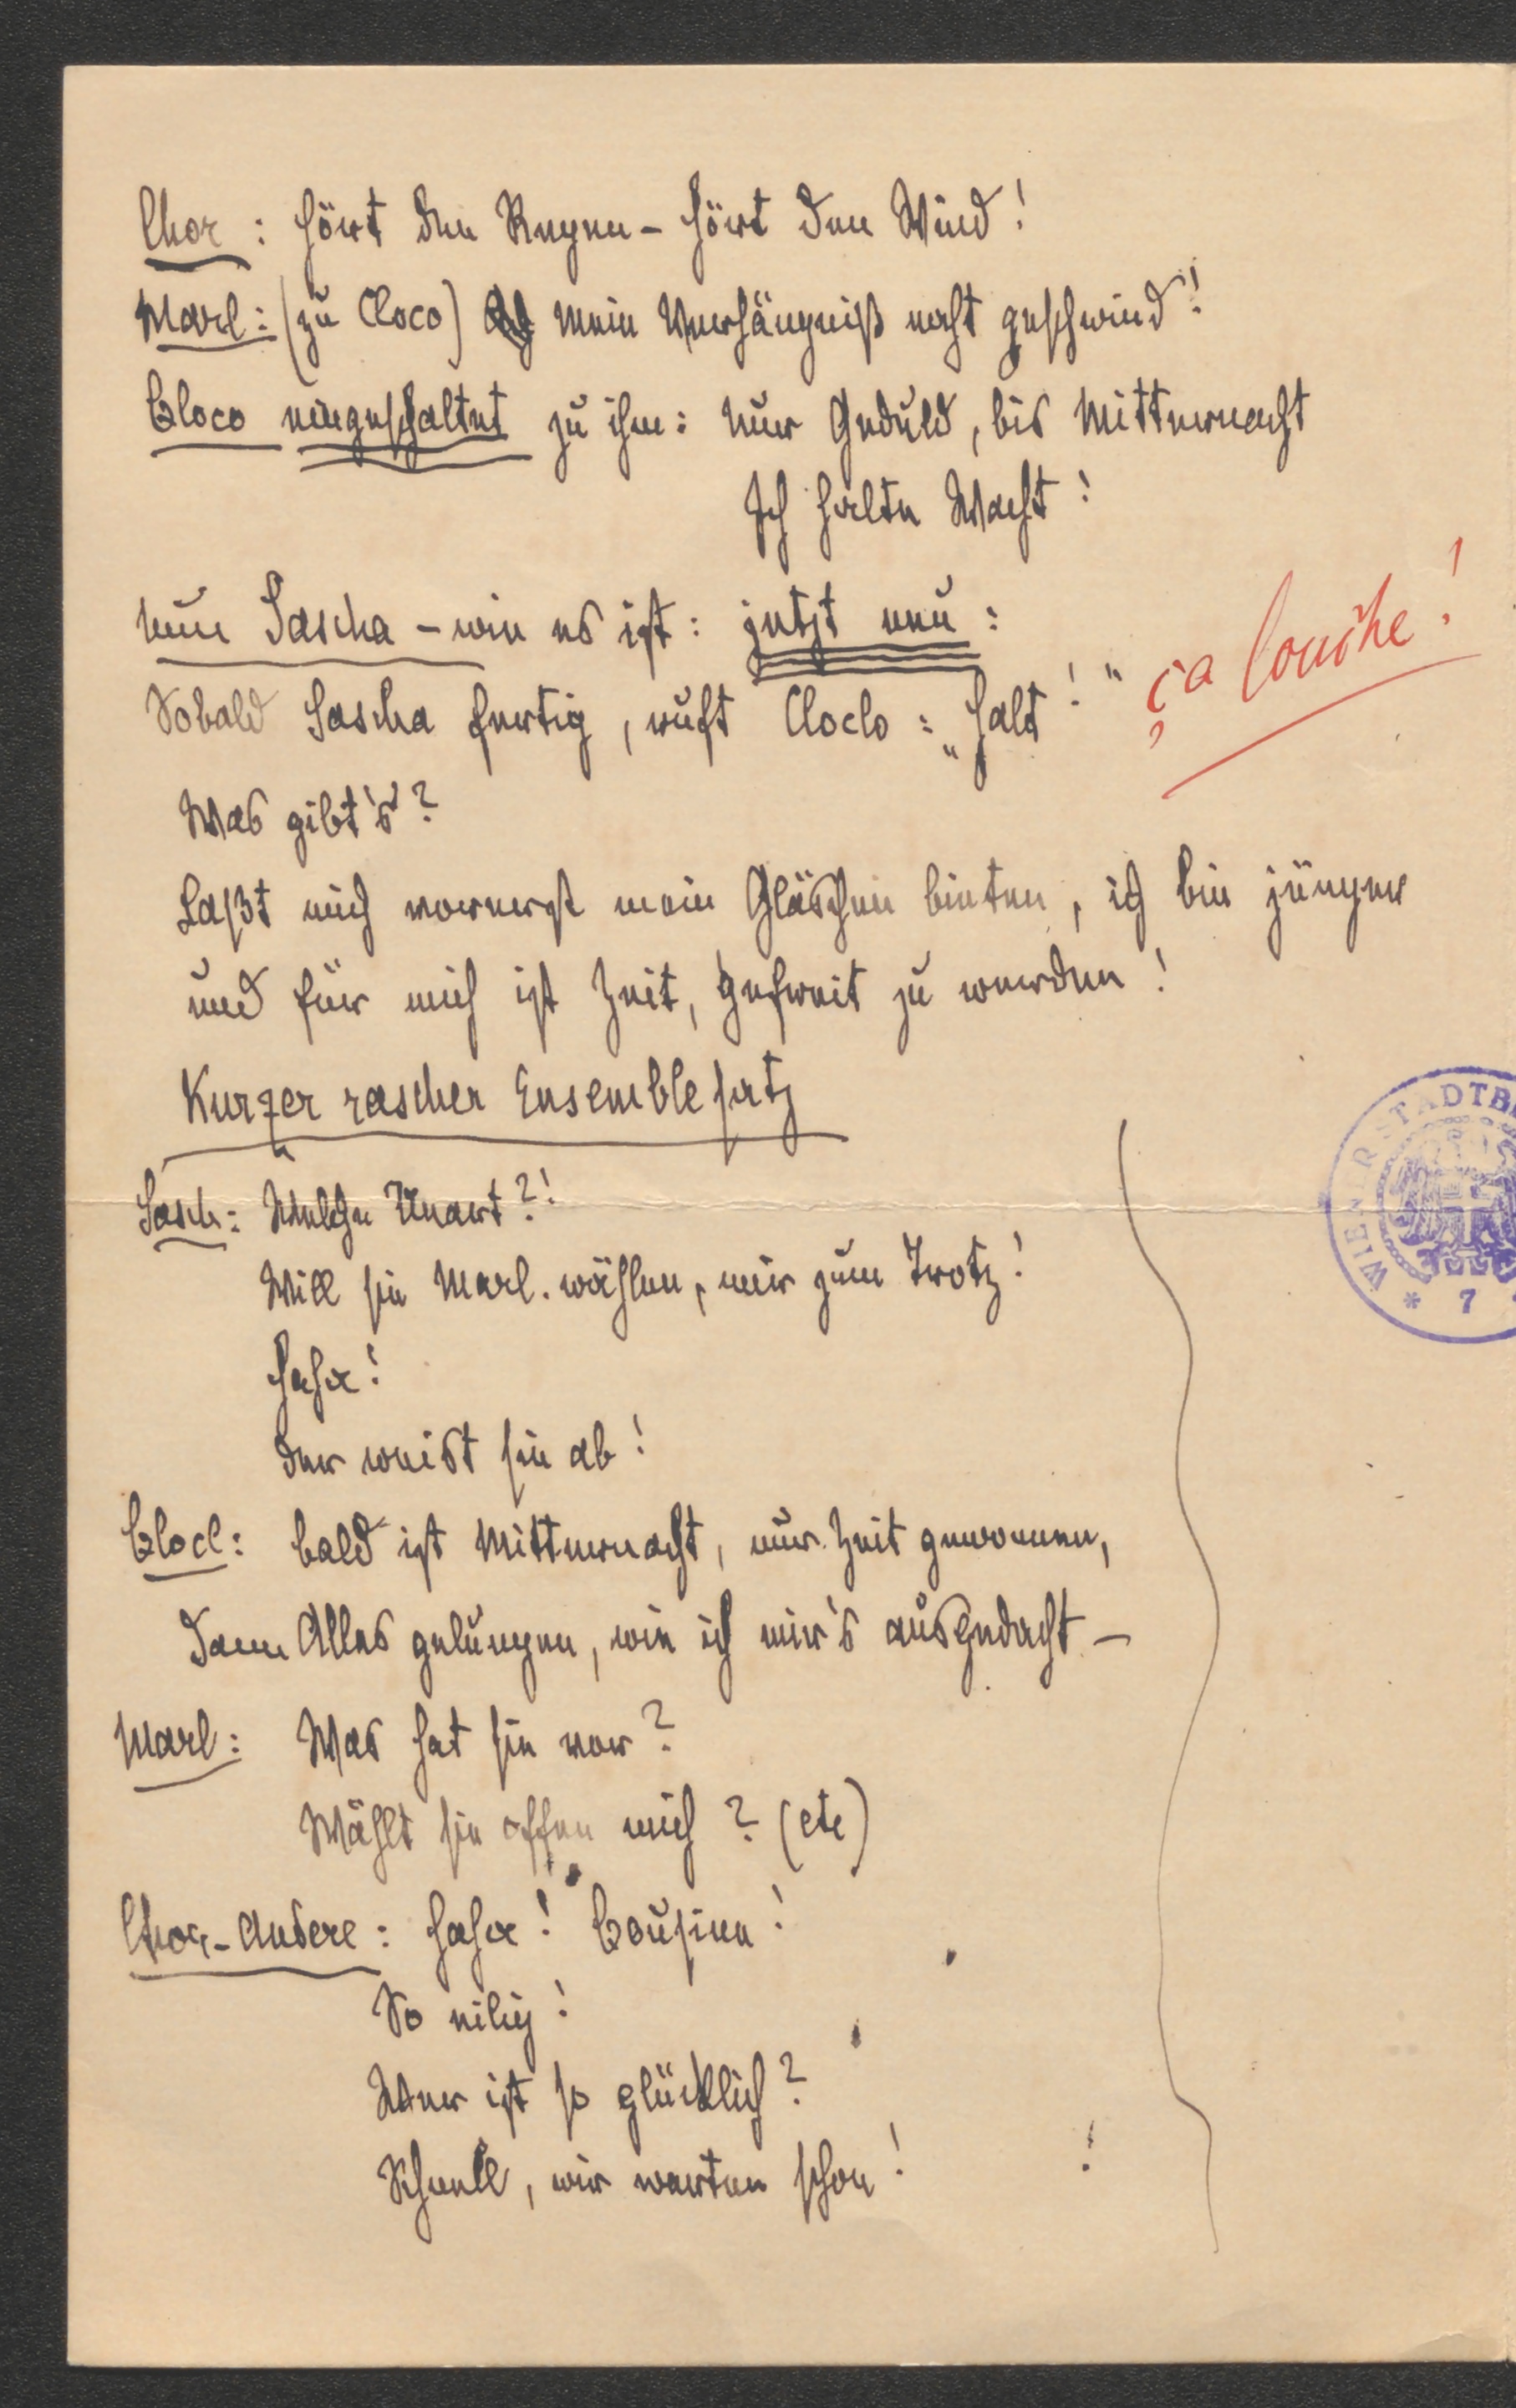 Chor: hört den Regen – hört den Wind!
Marl: (zu Cloco) mein Verhängniß naht geschwind!
Cloco eingeschaltet zu ihm: nur Geduld, bis Mitternacht
Ich halte Wacht!
nun Sascha – wie es ist: jetzt neu:
Sobald Sascha fertig, ruft Cloclo: „halt!“ ça louche!
Was gibt's?
Laßt mich vorerst mein Gläschen bieten, ich bin jünger
und für mich ist Zeit, gefreit zu werden!
Kurzer rascher Ensemblesatz
Sasch: Welche Unart?!
Will sie Marl. wählen, mir zum Trotz!
haha!
der weist sie ab!
Clocl: bald ist Mitternacht, nur Zeit gewonnen,
dann Alles gelungen, wie ich mir's ausgedacht –
Marl: Was hat sie vor?
Wählt sie offen mich? (etc)
Chor-Andere: haha! Cousine!
So eilig!
Wer ist so glücklich?
Schnell, wir warten schon!
WIENER STADTB
* 7